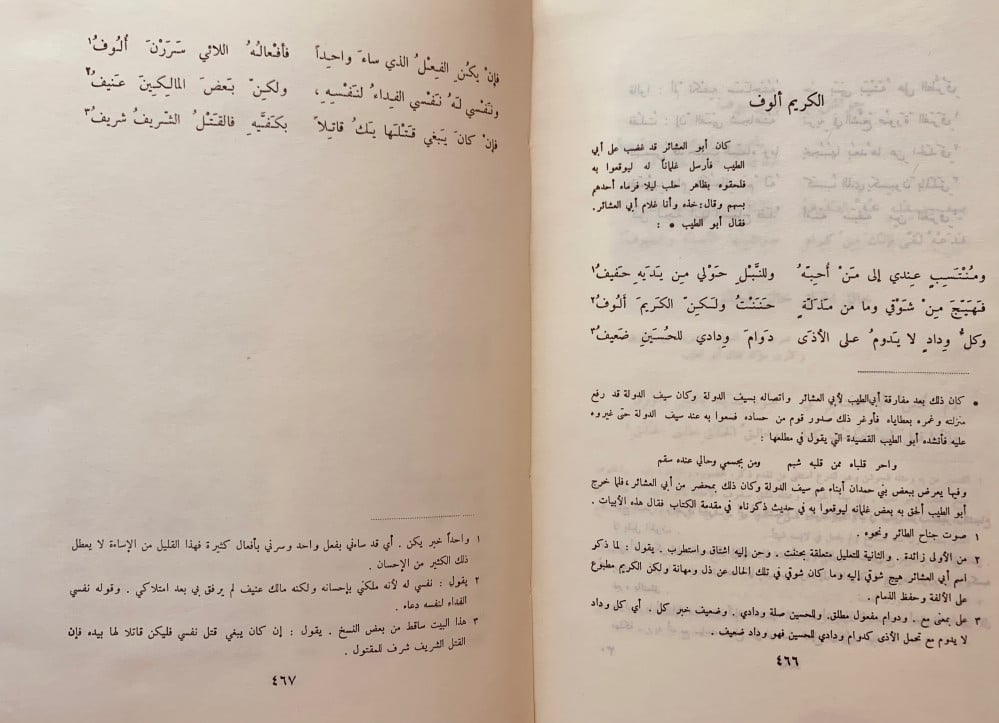 الكريم ألوف
كان أبو العشائر قد غضب على أبي
الطيب فأرسل غلماناً له ليوقعوا به
فلحقوه بظاهر حلب ليلا فرماه أحدهم
بسهم وقال: خذه وأنا غلام أبي العشائر.
فقال أبو الطيب • :
ومُنْتَسِبٍ عِندي إلى مَنْ أُحِبّهُ وللنَّبْلِ حَوْلي مِن يَدَيهِ حَفيفُ١
فَهَيّجَ مِنْ شَوْقي وما من مَذَلّةٍ حَنَنْتُ ولكِنّ الكَريمَ ألُوفُ٢
وكلُّ وِدادٍ لا يَدومُ على الأذَى دَوامَ وِدادي للحُسَينِ ضَعيفُ٣
• كان ذلك بعد مفارقة أبي الطيب لأبي العشائر واتصاله بسيف الدولة وكان سيف الدولة قد رفع
منزلته وغمره بعطاياه فأوغر ذلك صدور قوم من حساده فسعوا به عند سيف الدولة حتى غيروه
عليه فأنشده أبو الطيب القصيدة التي يقول في مطلعها :
واحر قلباه ممن قلبه شبم ومن بجسمي وحالي عنده سقم
وفيها يعرض ببعض بني حمدان أبناء عم سيف الدولة وكان ذلك بمحضر من أبي العشائر، فلما خرج
أبو الطيب ألحق به بعض غلمانه ليوقعوا به في حديث ذكرناه في مقدمة الكتاب فقال هذه الأبيات .
١ صوت جناح الطائر ونحوه .
٢ من الأولى زائدة . والثانية للتعليل متعلقة بحننت . وحن إليه اشتاق واستطرب . يقول : لما ذكر
اسم أبي العشائر هيج شوقي إليه وما كان شوقي في تلك الحال عن ذل ومهانة ولكن الكريم مطبوع
على الألفة وحفظ الذمام .
٣ على بمعنى مع . ودوام مفعول مطلق. وللحسين صلة ودادي . وضعيف خبر كل . أي كل وداد
لا يدوم مع تحمل الأذى كدوام ودادي للحسين فهو وداد ضعيف .
٤٦٦
فإنْ يكُنِ الفِعْلُ الذي ساءَ واحِداً فأفْعالُهُ اللائي سَرَرْنَ أُلُوفُ١
ونَفْسي لَهُ نَفْسي الفِداءُ لنَفْسِهِ، ولكِنّ بَعضَ المالِكِينَ عَنيفُ٢
فإنْ كانَ يَبغي قَتْلَها يَكُ قاتِلاً بكَفّيهِ فالقَتْلُ الشّريفُ شريفُ٣
١ واحداً خبر يكن . أي قد ساءني بفعل واحد وسرني بأفعال كثيرة فهذا القليل من الإساءة لا يعطل
ذلك الكثير من الإحسان .
٢ يقول : نفسي له لأنه ملكني بإحسانه ولكنه مالك عنيف لم يرفق بي بعد امتلاكي . وقوله نفسي
الفداء لنفسه دعاء .
٣ هذا البيت ساقط من بعض النسخ . يقول : إن كان يبغي قتل نفسي فليكن قاتلا لها بيده فإن
القتل الشريف شرف للمقتول .
٤٦٧